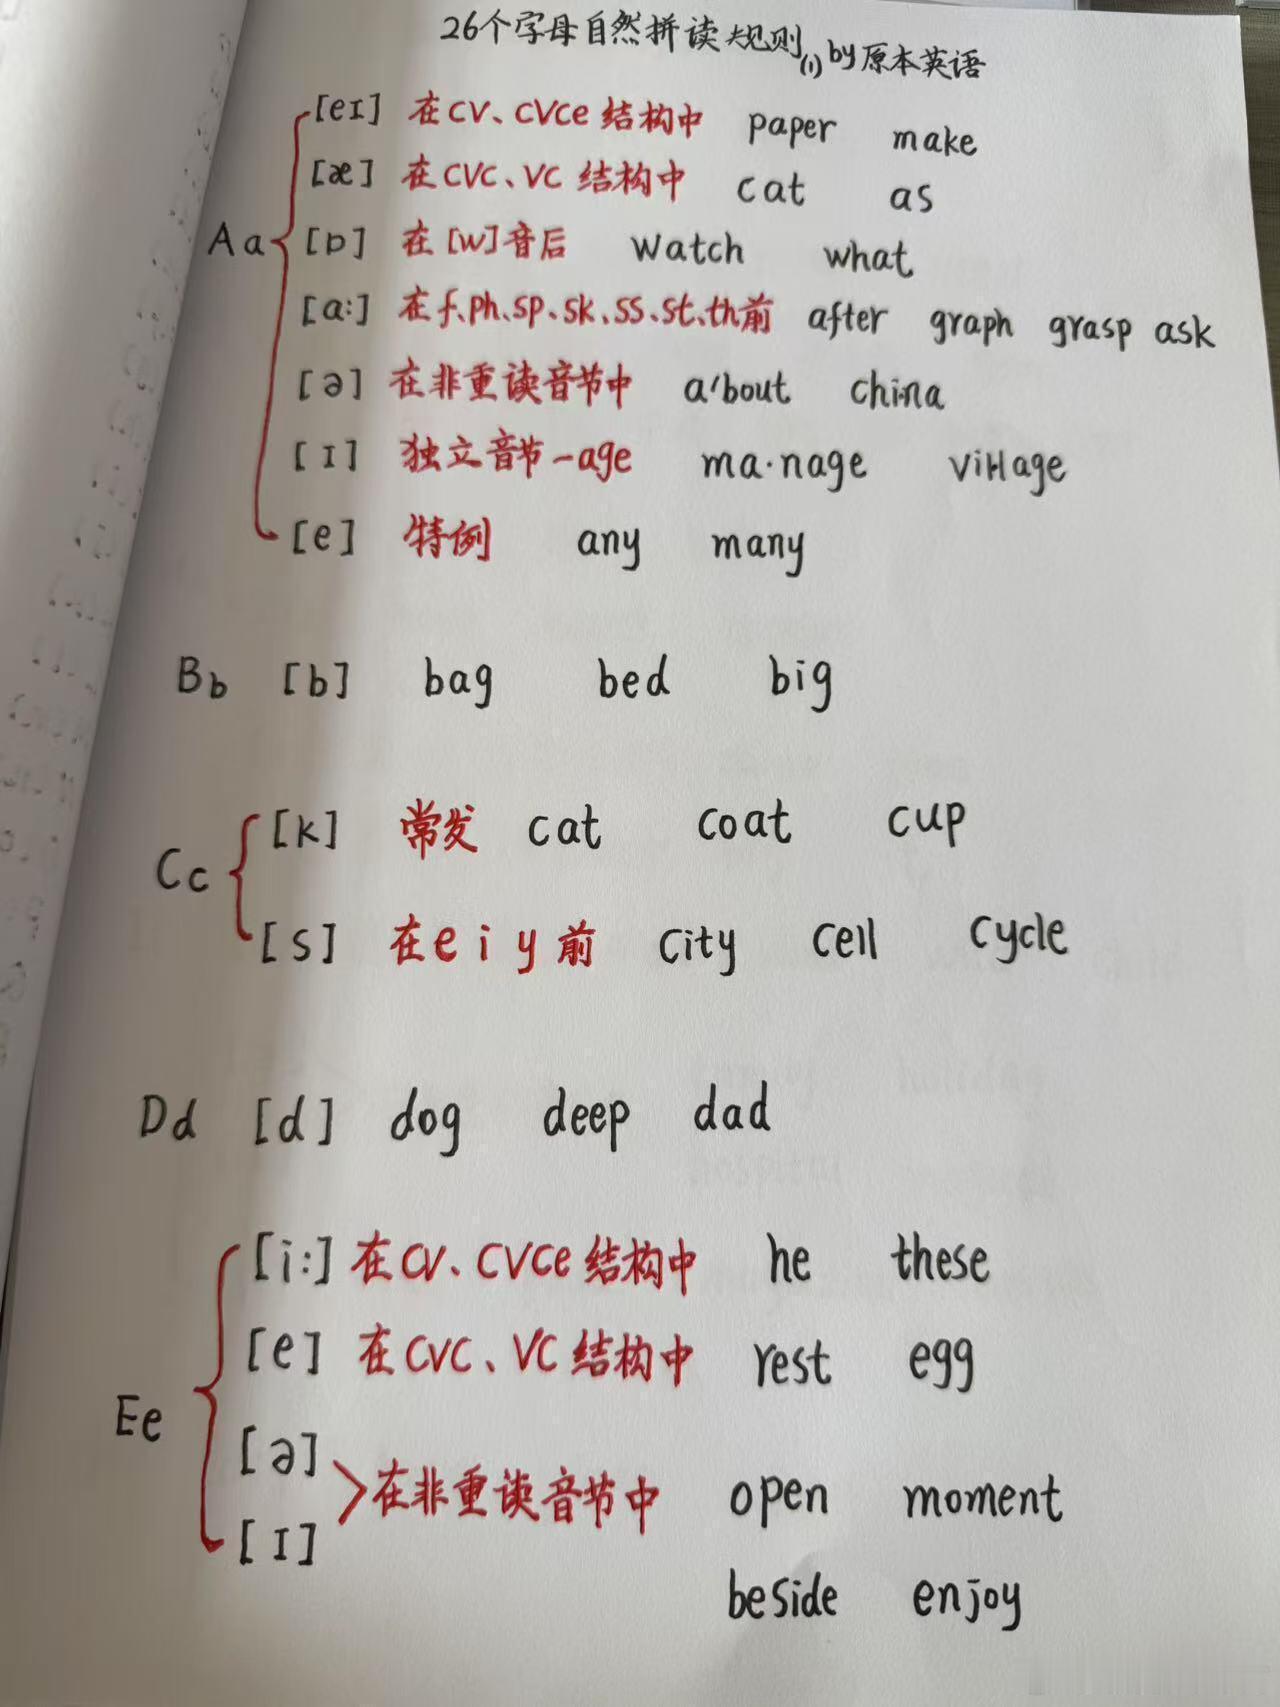 26个字母自然拼读规则(1) by原本英语
[eɪ] 在CV、CVCe结构中 paper make
[æ] 在CVC、VC结构中 cat as
Aa [ɒ] 在[w]音后 watch what
[a:] 在f、ph、sp、sk、ss、st、th前 after graph grasp ask
[ə] 在非重读音节中 a'bout china
[ɪ] 独立音节-age ma·nage village
[e] 特例 any many
Bb [b] bag bed big
[k] 常发 cat coat cup
Cc
[s] 在e i y前 city cell cycle
Dd [d] dog deep dad
[i:] 在CV、CVCe结构中 he these
[e] 在CVC、VC结构中 rest egg
Ee
[ə]
在非重读音节中 open moment
[ɪ]
beside enjoy